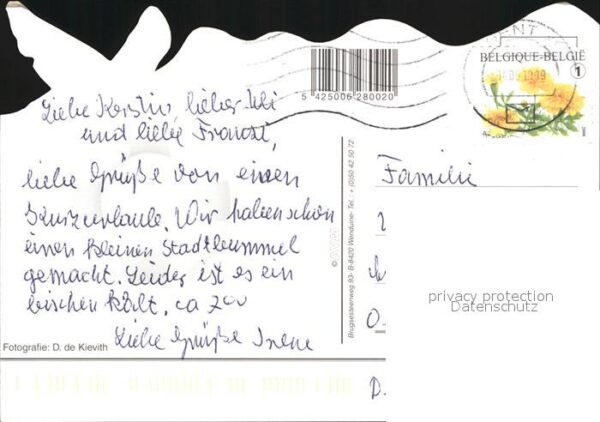 GENT
BELGIQUE-BELGIË
1
5 425006 280020
Liebe Kerstin, lieber Uli
und liebe Franzi,
liebe Grüße von einem
Kurzurlaub. Wir haben schon
einen kleinen Stadtbummel
gemacht. Leider ist es ein
bischen kalt. ca
Liebe Grüße Irene
Fotografie: D. de Kievith
Brugsesteenweg 93 - B-8420 Wenduine - Tel. + (0)50 42 50 72
Familie
O
D.
privacy protection
Datenschutz